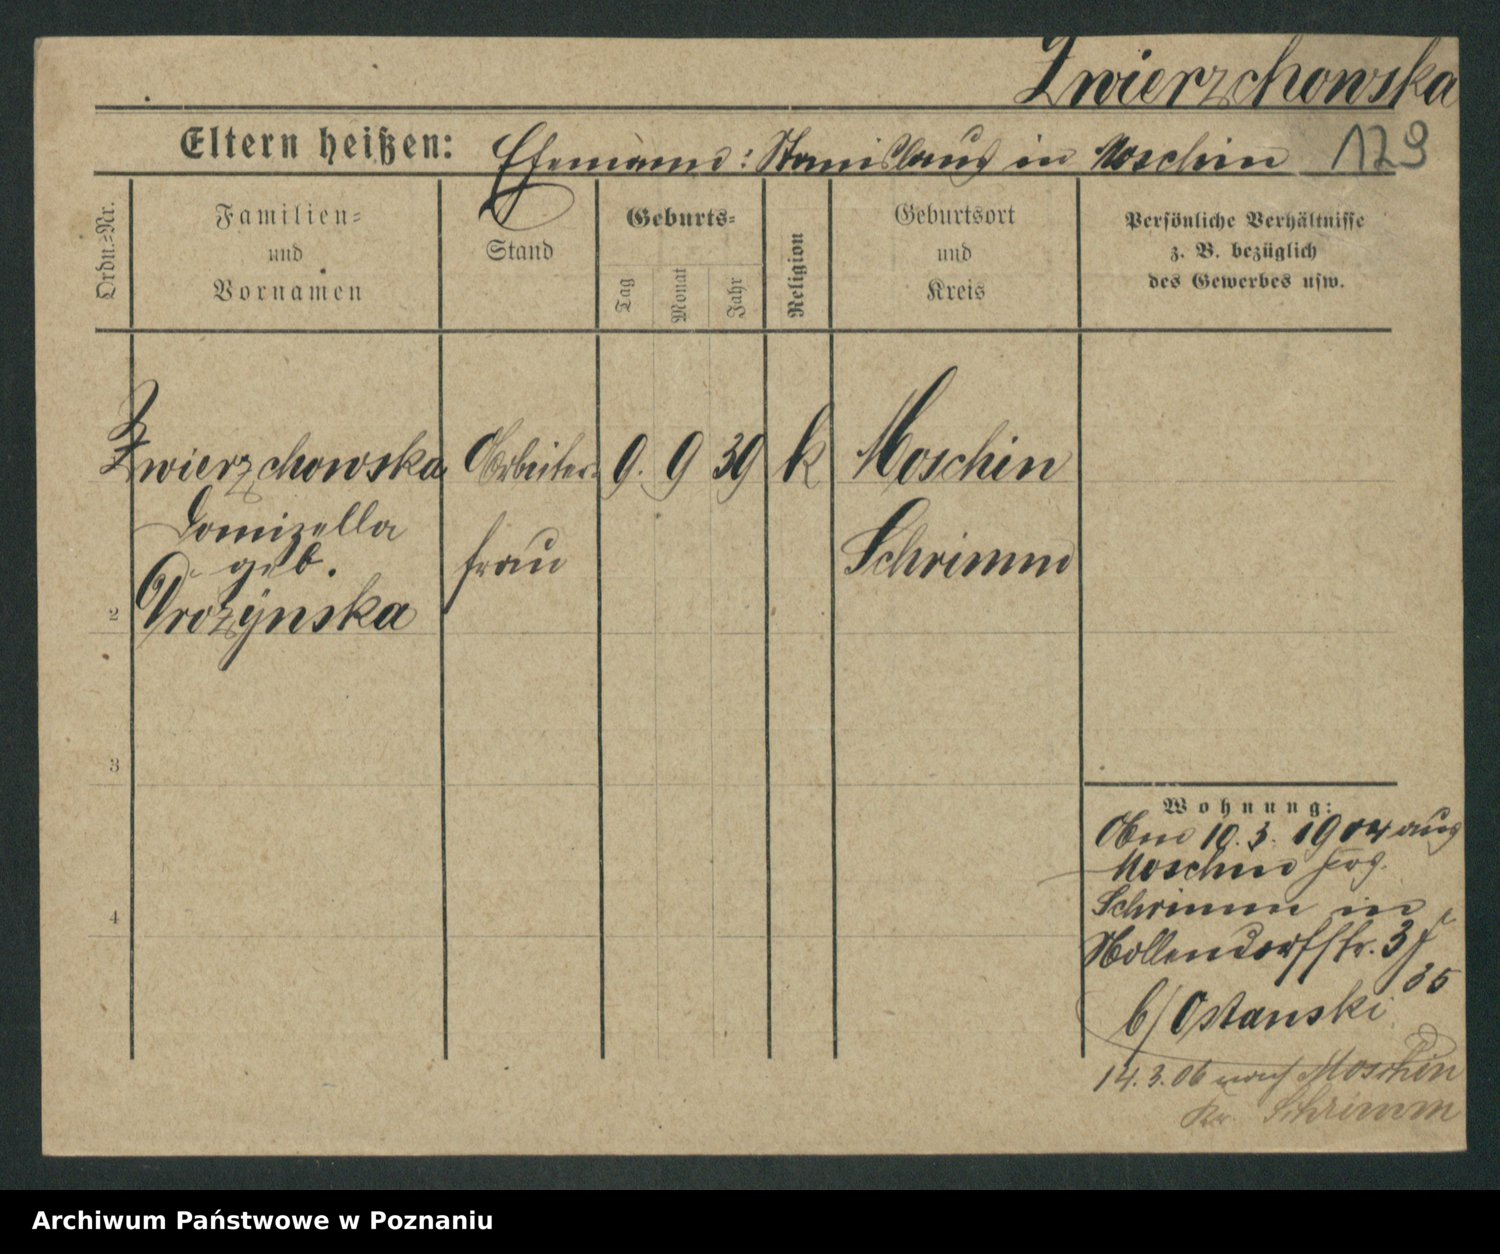 Zwierzchowska
Eltern heißen: Ehemann: Stanislaus in Moschin 179
Ordn.=Nr.
Familien=
und
Vornamen
Stand
Geburts=
Tag
Monat
Jahr
Religion
Geburtsort
und
Kreis
Persönliche Verhältnisse
z. B. bezüglich
des Gewerbes usw.
Zwierzchowska Arbeiter= 9. 9 39 k Moschin
Domizella
geb. frau Schrimm
2 Drozynska
3
4
Wohnung:
Am 10. 3. 1904 aus
Moschin
Schrimm in
Nollendorfstr. 35
35
b/ Ostanski
14. 3. 06 nach Moschin
Kr. Schrimm
Archiwum Państwowe w Poznaniu